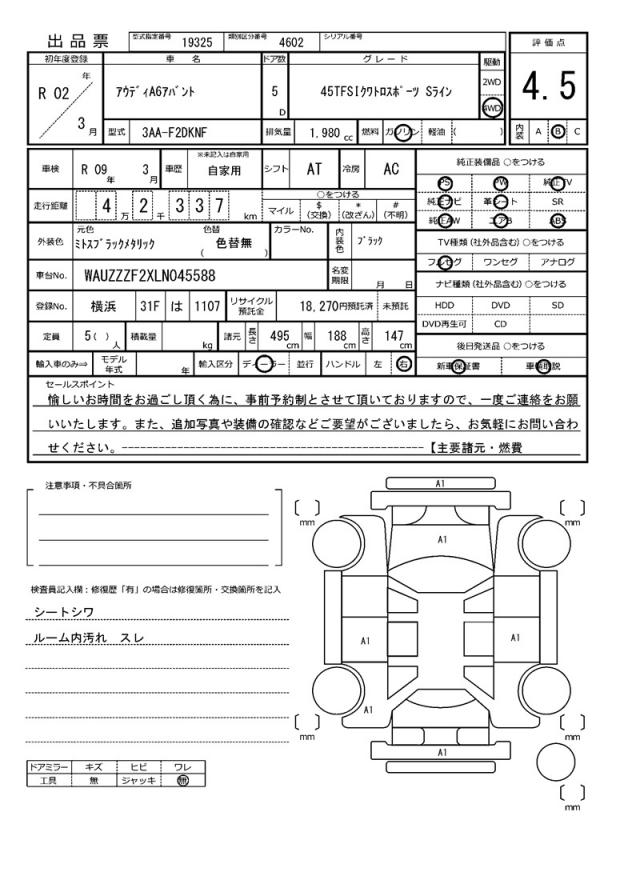 出品票 型式指定番号 19325 類別区分番号 4602 シリアル番号
初年度登録 車名 ドア数 グレード 駆動 評価点
R 02 年 3 月 アウディA6アバント 5 D 45TFSIクワトロスポーツ Sライン 2WD 4WD 4.5
型式 3AA-F2DKNF 排気量 1.980 cc 燃料 ガソリン 軽油 ( ) 内装 A B C
車検 R 09 年 3 月 車歴 ※未記入は自家用 自家用 シフト AT 冷房 AC 純正装備品 ○をつける
PS PW 純正TV
走行距離 4 万 2 千 3 3 7 km ○をつける マイル $ (交換) * (改ざん) # (不明) 純正ナビ 革シート SR
純正AW エアB ABS
外装色 元色 ミトスブラックメタリック 色替 ( 色替無 ) カラーNo. 内装色 ブラック TV種類 (社外品含む) ○をつける
フルセグ ワンセグ アナログ
車台No. WAUZZZF2XLN045588 名変期限 月 日 ナビ種類 (社外品含む) ○をつける
登録No. 横浜 31F は 1107 リサイクル預託金 18,270円預託済 未預託 HDD DVD SD
DVD再生可 CD
定員 5( ) 人 積載量 kg 諸元 長さ 495 cm 幅 188 cm 高さ 147 cm 後日発送品 ○をつける
輸入車のみ⇒ モデル年式 年 輸入区分 ディーラー 並行 ハンドル 左 右 新車保証書 車輌取説
セールスポイント
愉しいお時間をお過ごし頂く為に、事前予約制とさせて頂いておりますので、一度ご連絡をお願
いいたします。また、追加写真や装備の確認などご要望がございましたら、お気軽にお問い合わ
せください。------------------------------------------【主要諸元・燃費
注意事項・不具合箇所
検査員記入欄：修復歴「有」の場合は修復箇所・交換箇所を記入
シートシワ
ルーム内汚れ スレ
ドアミラー キズ ヒビ ワレ
工具 無 ジャッキ 無
A1
[ ] mm [ ] mm
A1
A1 A1
A1
[ ] mm [ ] mm
A1
[ ] mm